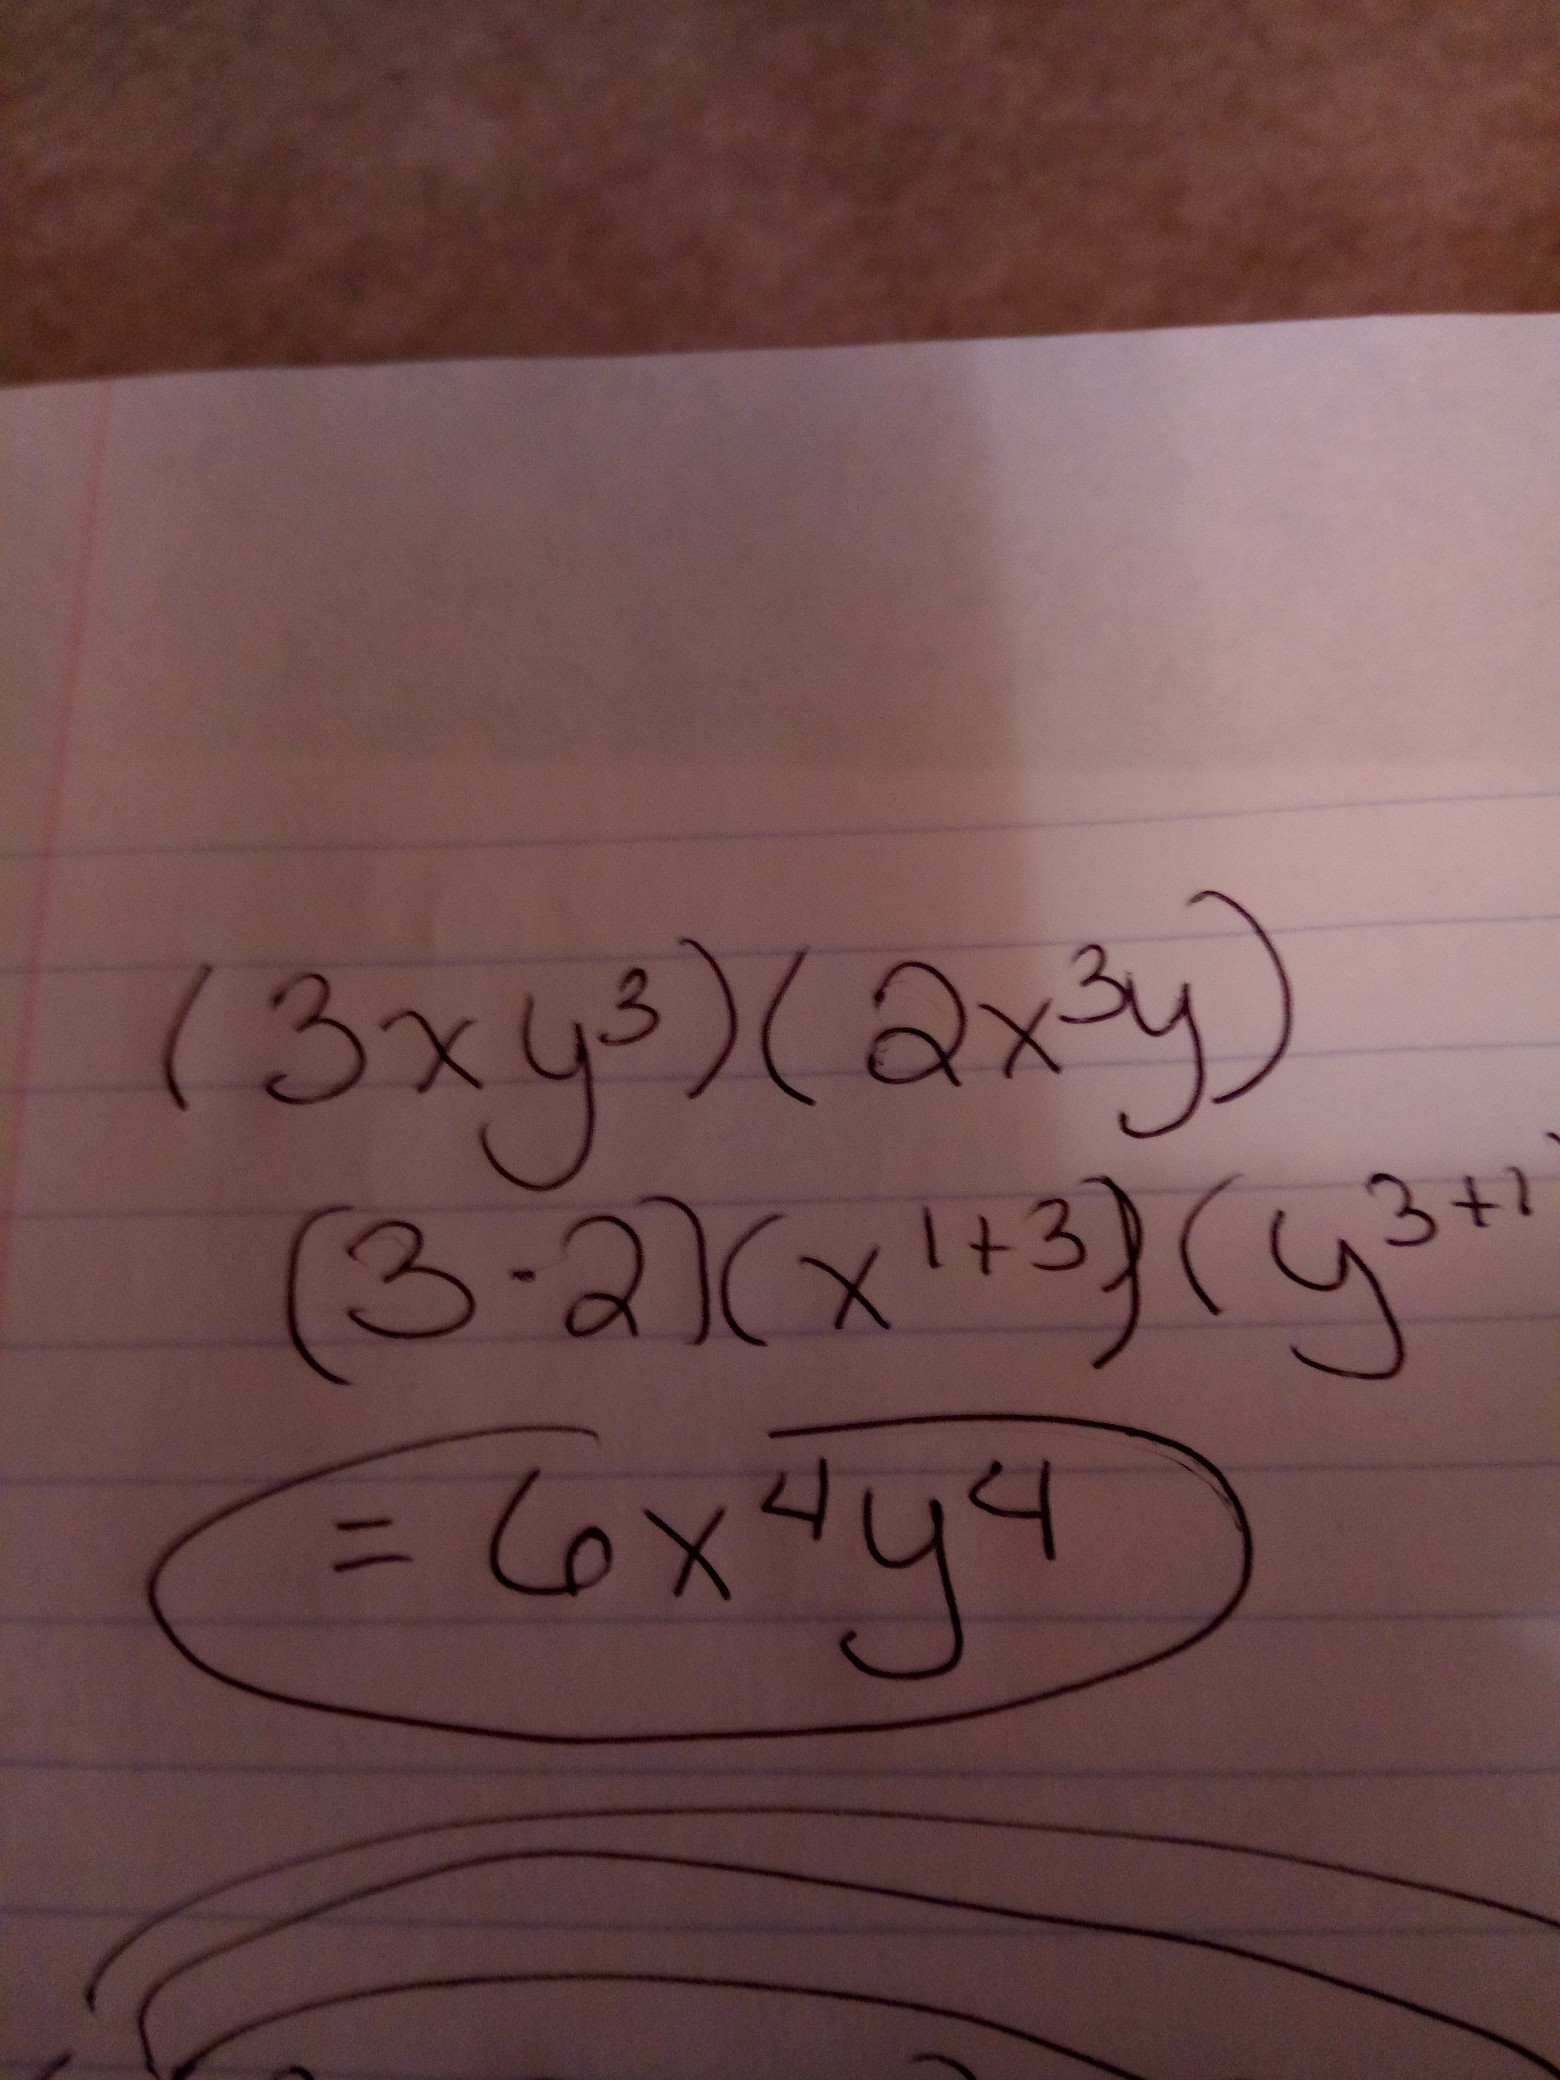 (3xy³)(2x³y)
(3·2)(x¹⁺³)(y³⁺¹
= 6x⁴y⁴